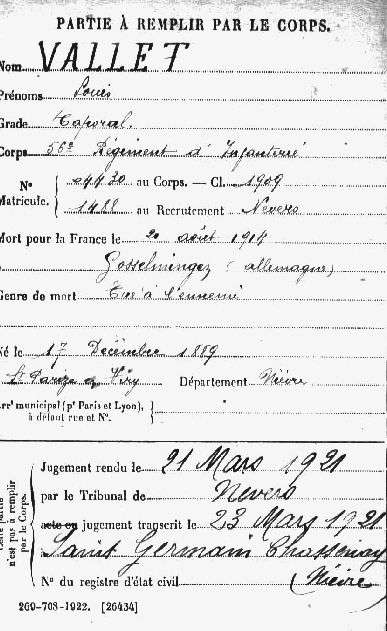 PARTIE À REMPLIR PAR LE CORPS.
Nom VALLET
Prénoms Louis
Grade Caporal.
Corps 56e Régiment d'Infanterie
No 04430 au Corps. — Cl. 1909
Matricule. 1428 au Recrutement Nevers
Mort pour la France le 20 août 1914
à Gosselmingen (allemagne)
Genre de mort Tué à l'ennemi
Né le 17 Décembre 1889
St Parize Viry Département Nièvre
arrt municipal (pr Paris et Lyon),
à défaut rue et No.
Cette partie
n'est pas à remplir
par le Corps.
Jugement rendu le 21 Mars 1921
par le Tribunal de Nevers
acte ou jugement transcrit le 23 Mars 1921
Saint Germain Chassenay
No du registre d'état civil (Nièvre)
260-708-1922. [26434]